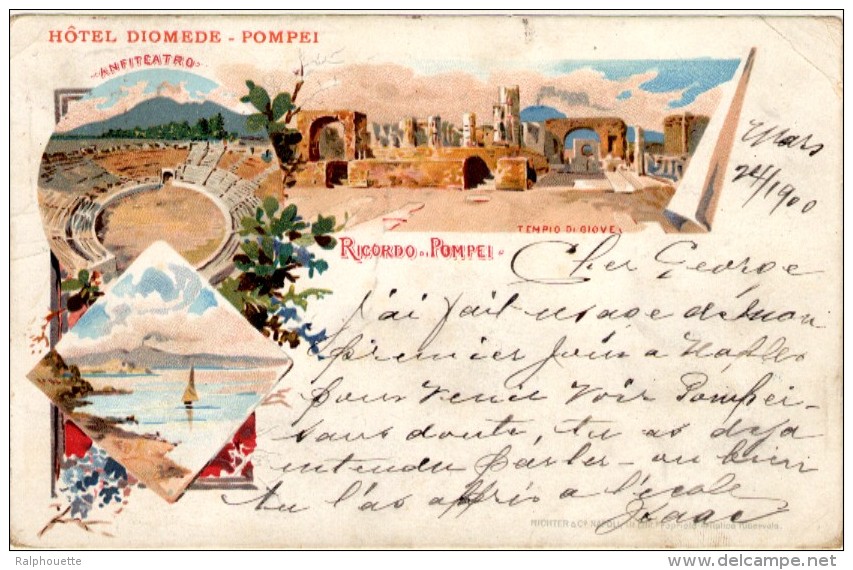 HÔTEL DIOMEDE - POMPEI
ANFITEATRO
TEMPIO DI GIOVE
RICORDO DI POMPEI
Mars
24/1900
Cher George
J'ai fait usage de mon
premier jour a Naples
pour venir voir Pompei -
sans doute, tu as deja
entendu parler - ou bien
tu l'as appris a l'école
Isaac
RICHTER & Co. NAPOLI
Proprietà Artistica Riservata.
Ralphouette
delcampe.net